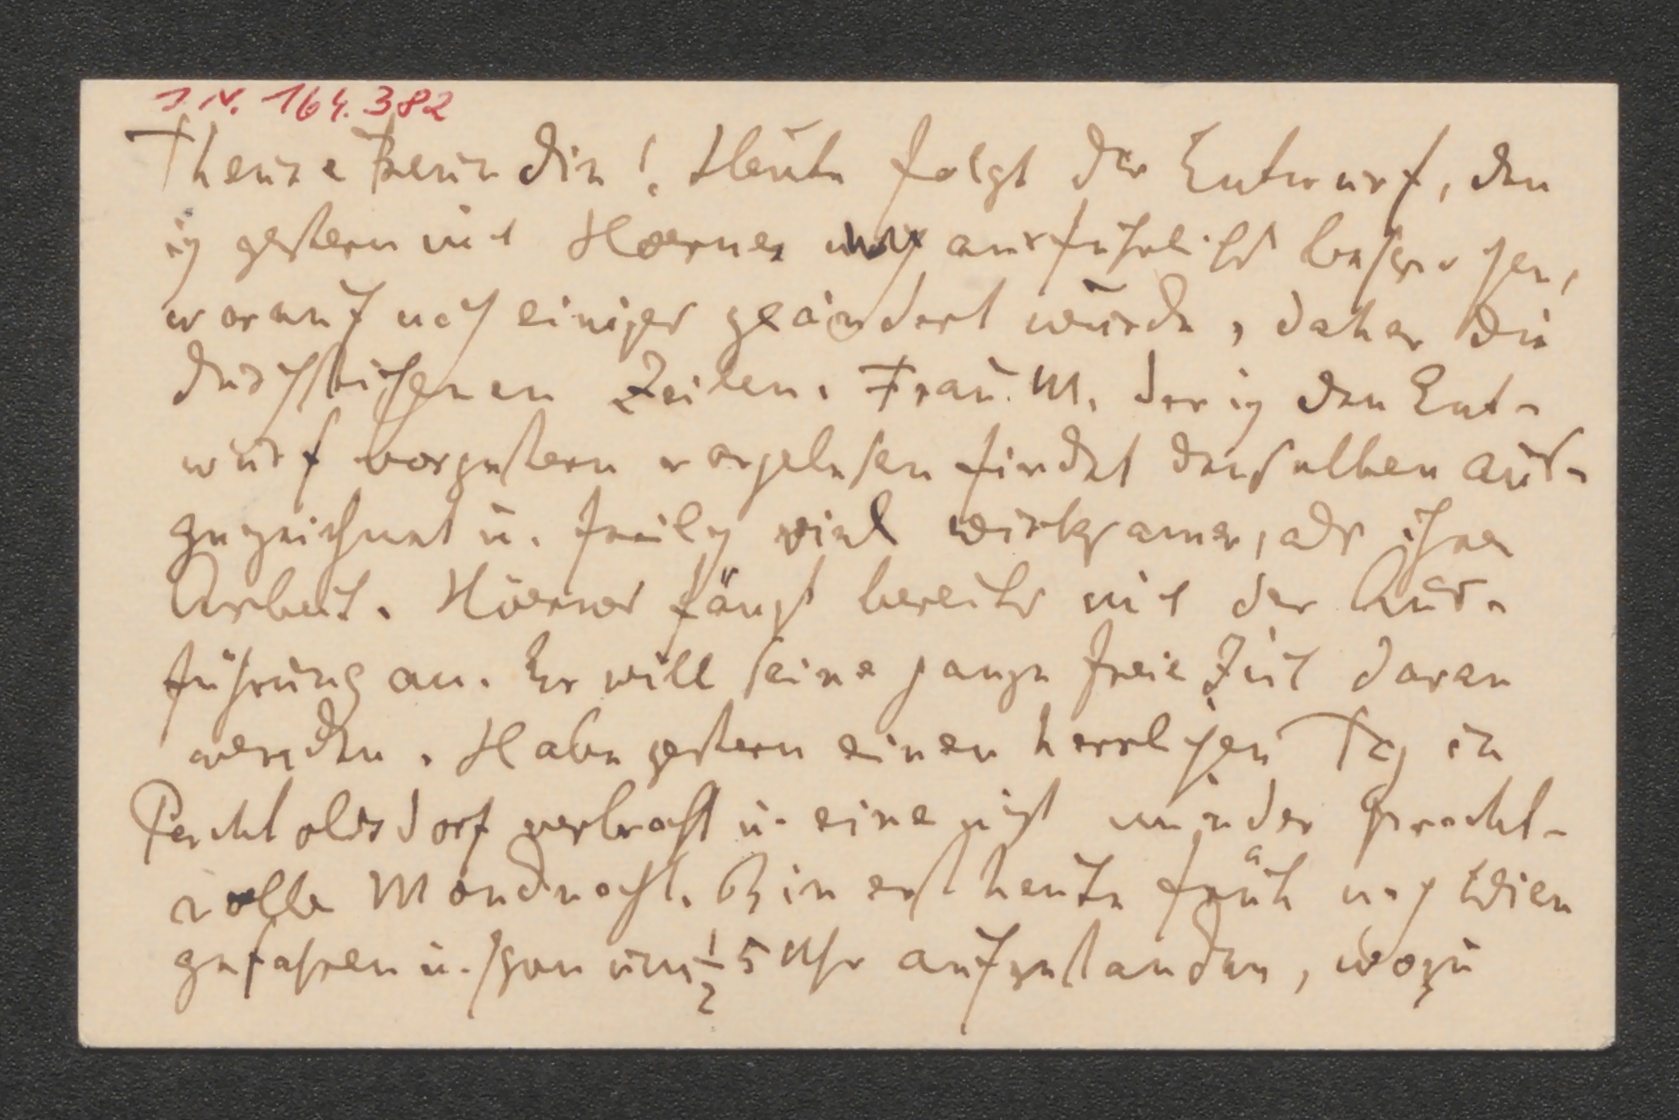 J.N. 164.382
Theure Freundin! Heute folgt der Entwurf, den
ich gestern mit Hoernes noch ausführlichst besprochen,
worauf noch einiges geändert wurde, daher die
durchstrichenen Zeilen. Frau M. der ich den Ent-
wurf vorgestern vorgelesen findet denselben aus-
gezeichnet u. freilich viel wirksamer, als ihre
Arbeit. Hoernes fängt bereits mit der Aus-
führung an. Er will seine ganze freie Zeit daran
wenden. Habe gestern einen herrlichen Tag in
Perchtoldsdorf verbracht u. eine nicht minder pracht-
volle Mondnacht. Bin erst heute früh nach Wien
gefahren u. schon um ½ 5 Uhr aufgestanden, wozu